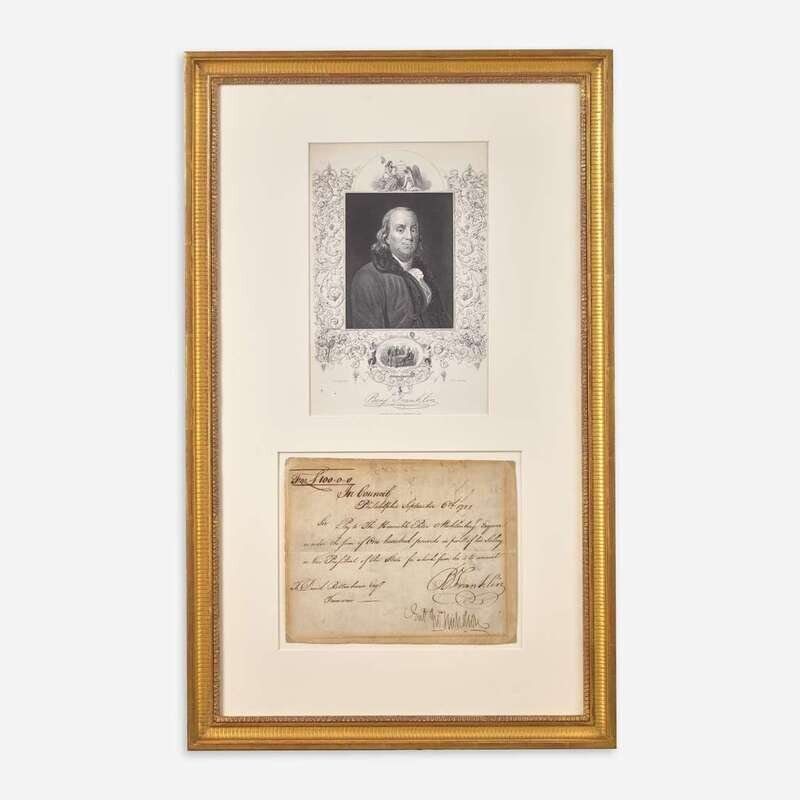 Benj. Franklin
For £100-0-0
In Council
Philadelphia September 6th
Sir Pay to The Honorable Peter Muhlenberg Esquire
or order the sum of One hundred pounds in part of his Salary
as Vice President of the State for which sum he is to account
To David Rittenhouse Esqr
Treasurer
B Franklin
Jno Nicholson